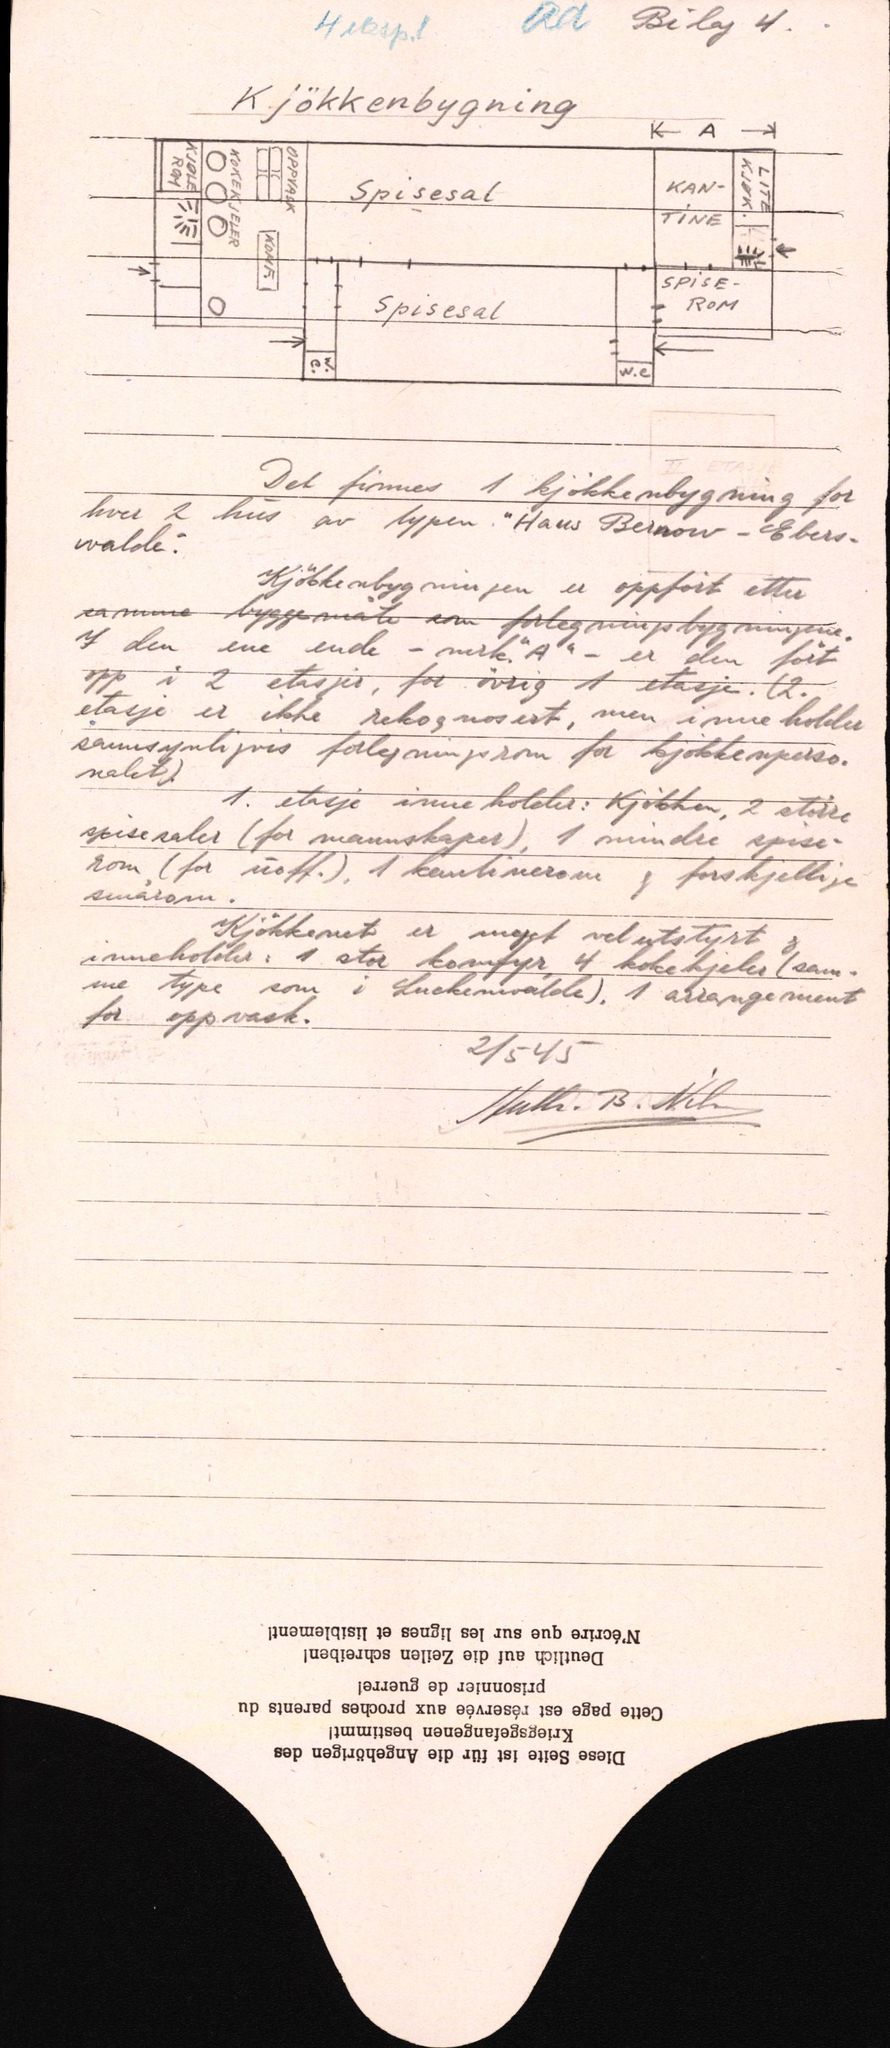 4 eksp.!
ad
Bilag 4.
Kjökkenbygning
A
KJØLE
ROM
KOKEKJELER
OPPVASK
KOMF.
Spisesal
KAN-
TINE
LITE
KJØK.
Spisesal
SPISE-
ROM
W.
C.
W.C
II ETASJE
Det finnes 1 kjökkenbygning for
hver 2 hus av typen "Haus Bernow - Ebers-
walde".
Kjökkenbygningen er oppfört etter
samme byggemåte som forlegningsbygningene.
I den ene ende - mrk. "A" - er den fört
opp i 2 etasjer, for övrig 1 etasje. (2.
etasje er ikke rekognosert, men inneholder
sannsynligvis forlegningsrom for kjökkenperso-
nalet).
1. etasje inneholder: Kjökken, 2 större
spisesaler (for mannskaper), 1 mindre spise-
rom (for uoff.), 1 kantinerom & forskjellige
smårom.
Kjökkenet er meget vel utstyrt &
inneholder: 1 stor komfyr, 4 kokekjeler (sam-
me type som i Luckenwalde), 1 arrangement
for oppvask.
2/5 45
B.
N'écrire que sur les lignes et lisiblement!
Deutlich auf die Zeilen schreiben!
prisonnier de guerre!
Cette page est réservée aux proches parents du
Kriegsgefangenen bestimmt!
Diese Seite ist für die Angehörigen des